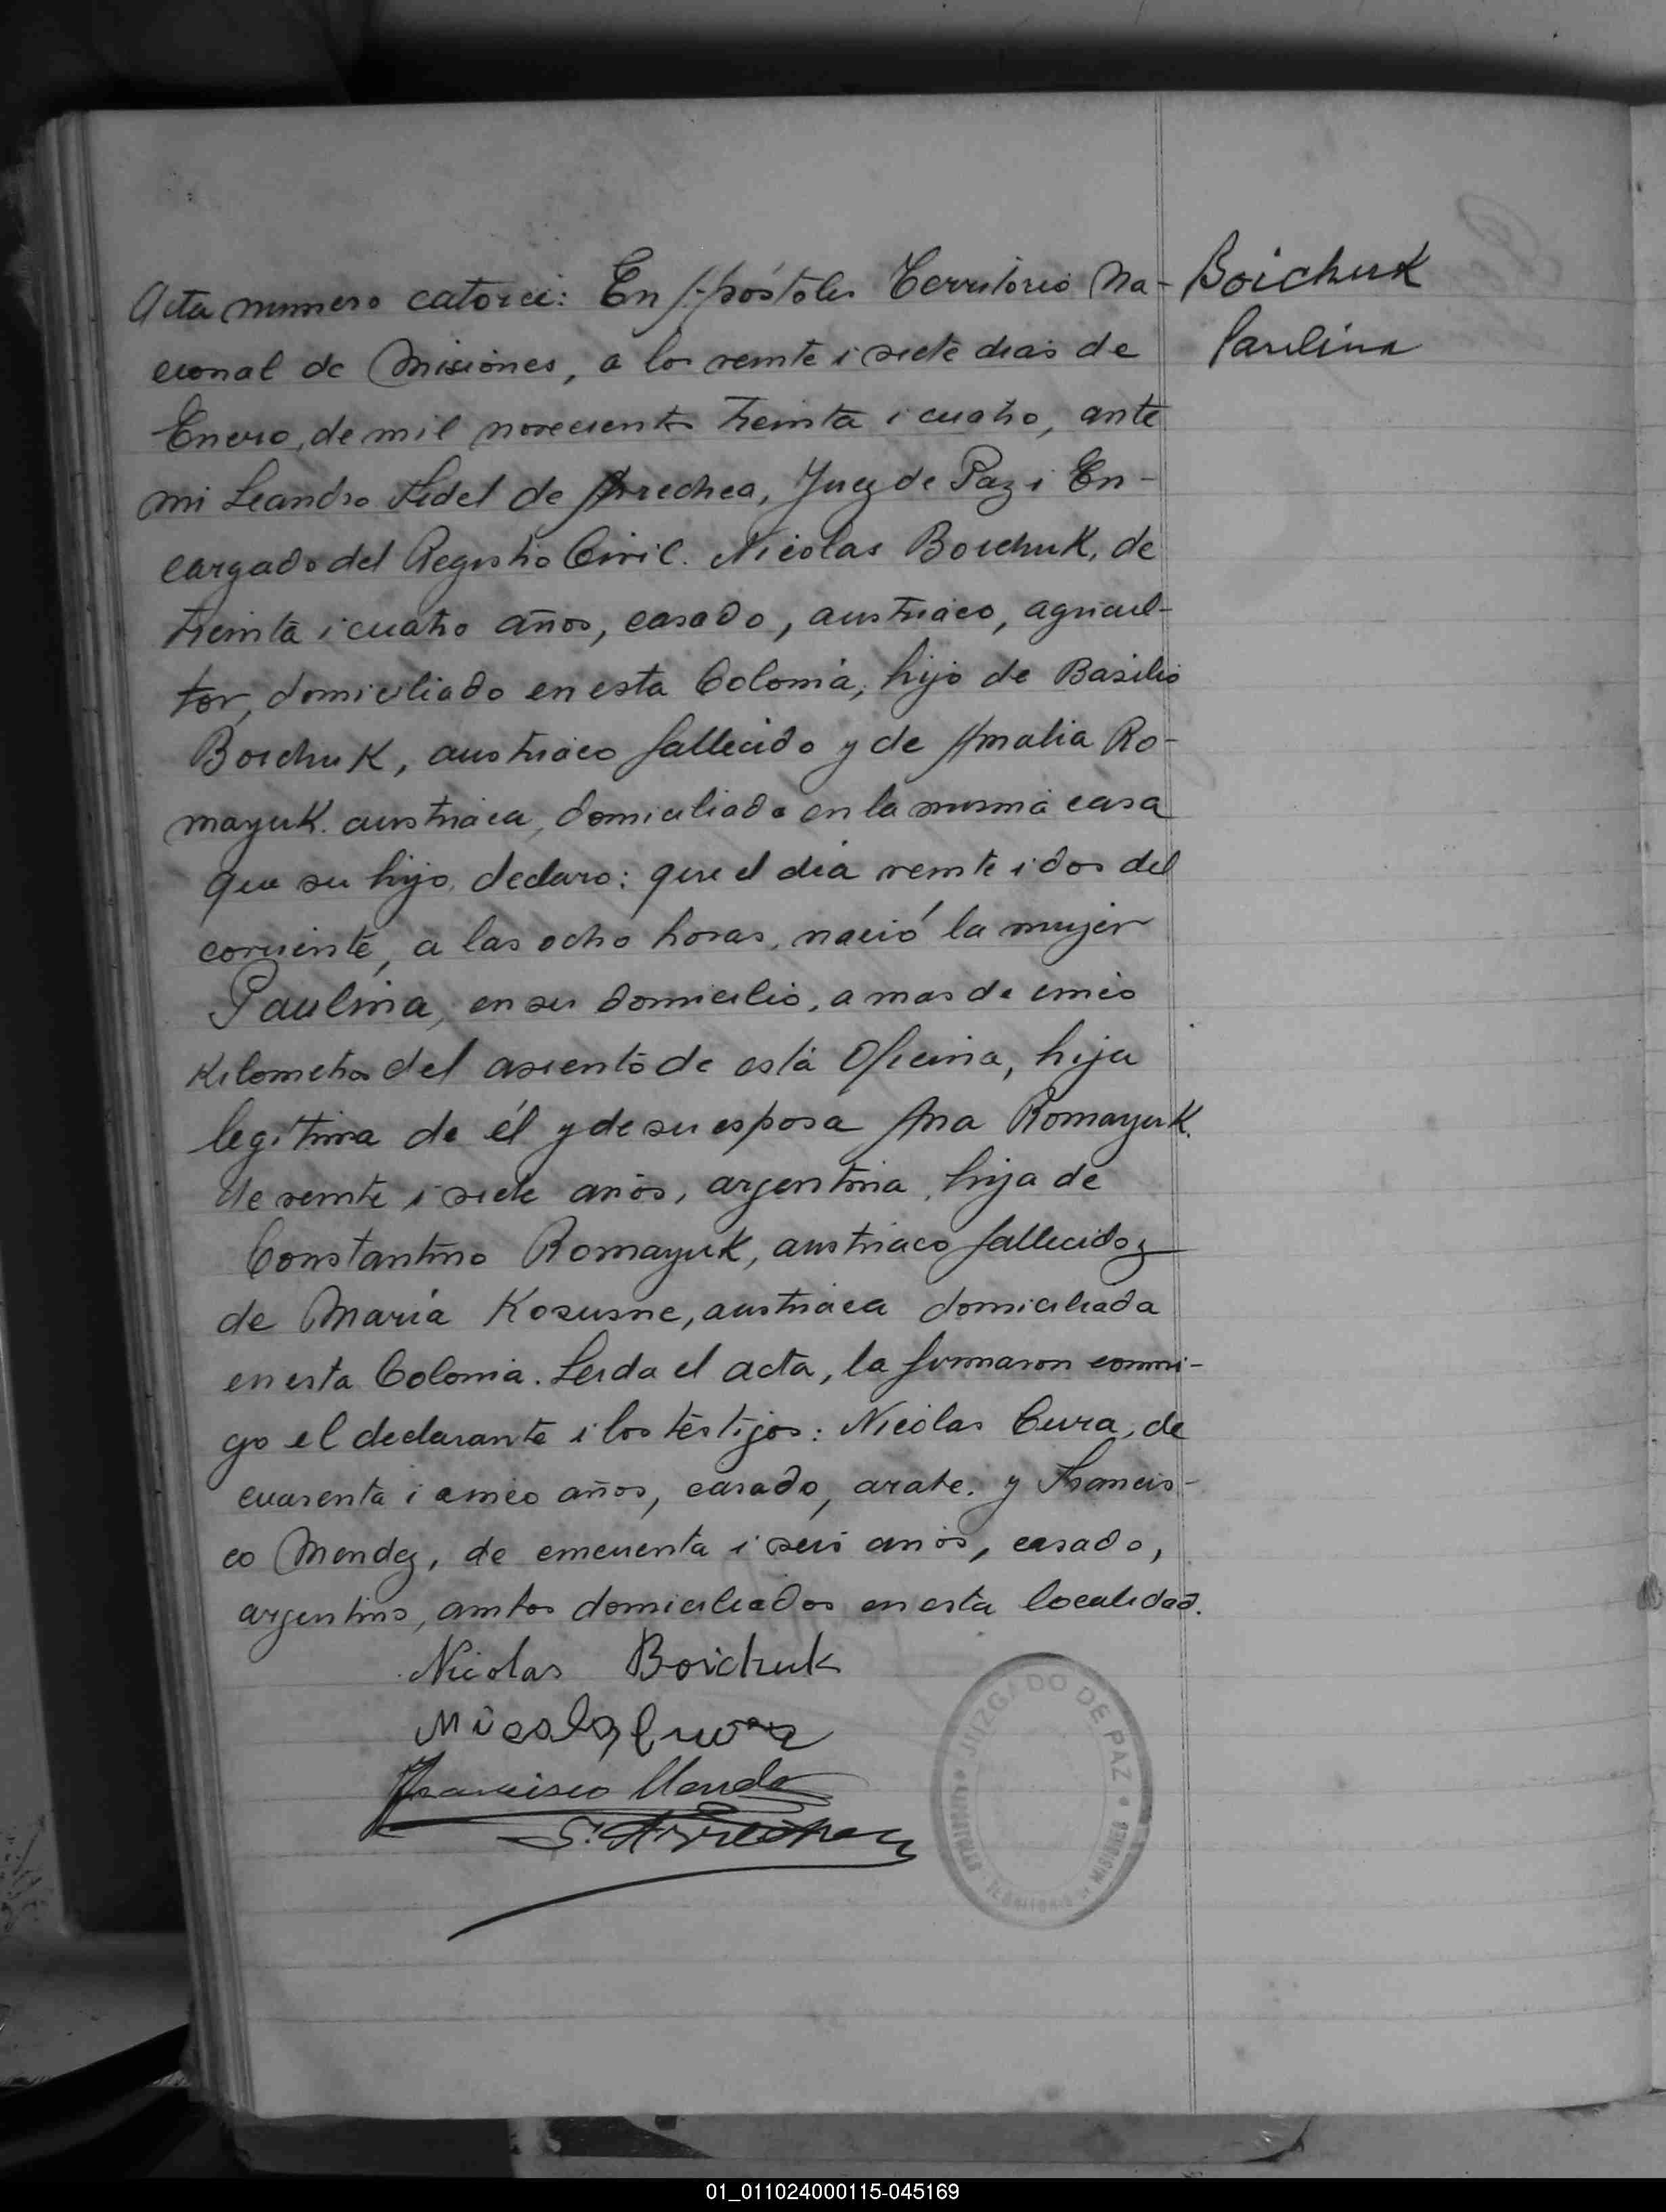 Acta numero catorce: En Apóstoles Territorio Na-
cional de Misiones, a los veinte i siete dias de
Enero, de mil novecientos treinta i cuatro, ante
mi Leandro Fidel de Arrechea, Juez de Paz i En-
cargado del Registro Civil. Nicolas Boichuk, de
treinta i cuatro años, casado, austriaco, agricul-
tor, domiciliado en esta Colonia, hijo de Basilio
Boichuk, austriaco fallecido y de Amalia Ro-
mayuk. austriaca, domiciliada en la misma casa
que su hijo, declaro: que el dia veinte i dos del
corriente, a las ocho horas, nació la mujer
Paulina, en su domicilio, a mas de cinco
Kilometros del asiento de esta Oficina, hija
legitima de él y de su esposa Ana Romayuk.
de veinte i siete años, argentina, hija de
Constantino Romayuk, austriaco fallecido y
de María Kosusne, austriaca domiciliada
en esta Colonia. Leida el acta, la firmaron conmi-
go el declarante i los testigos: Nicolas Cura, de
cuarenta i cinco años, casado, arabe. y Francis-
co Mendez, de cincuenta i seis años, casado,
argentino, ambos domiciliados en esta localidad.
Nicolas Boichuk
Nicolas Cura
Francisco Mendez
L. Arrechea
Boichuk
Paulina
JUZGADO DE PAZ
TERRITORIO DE MISIONES
01_011024000115-045169